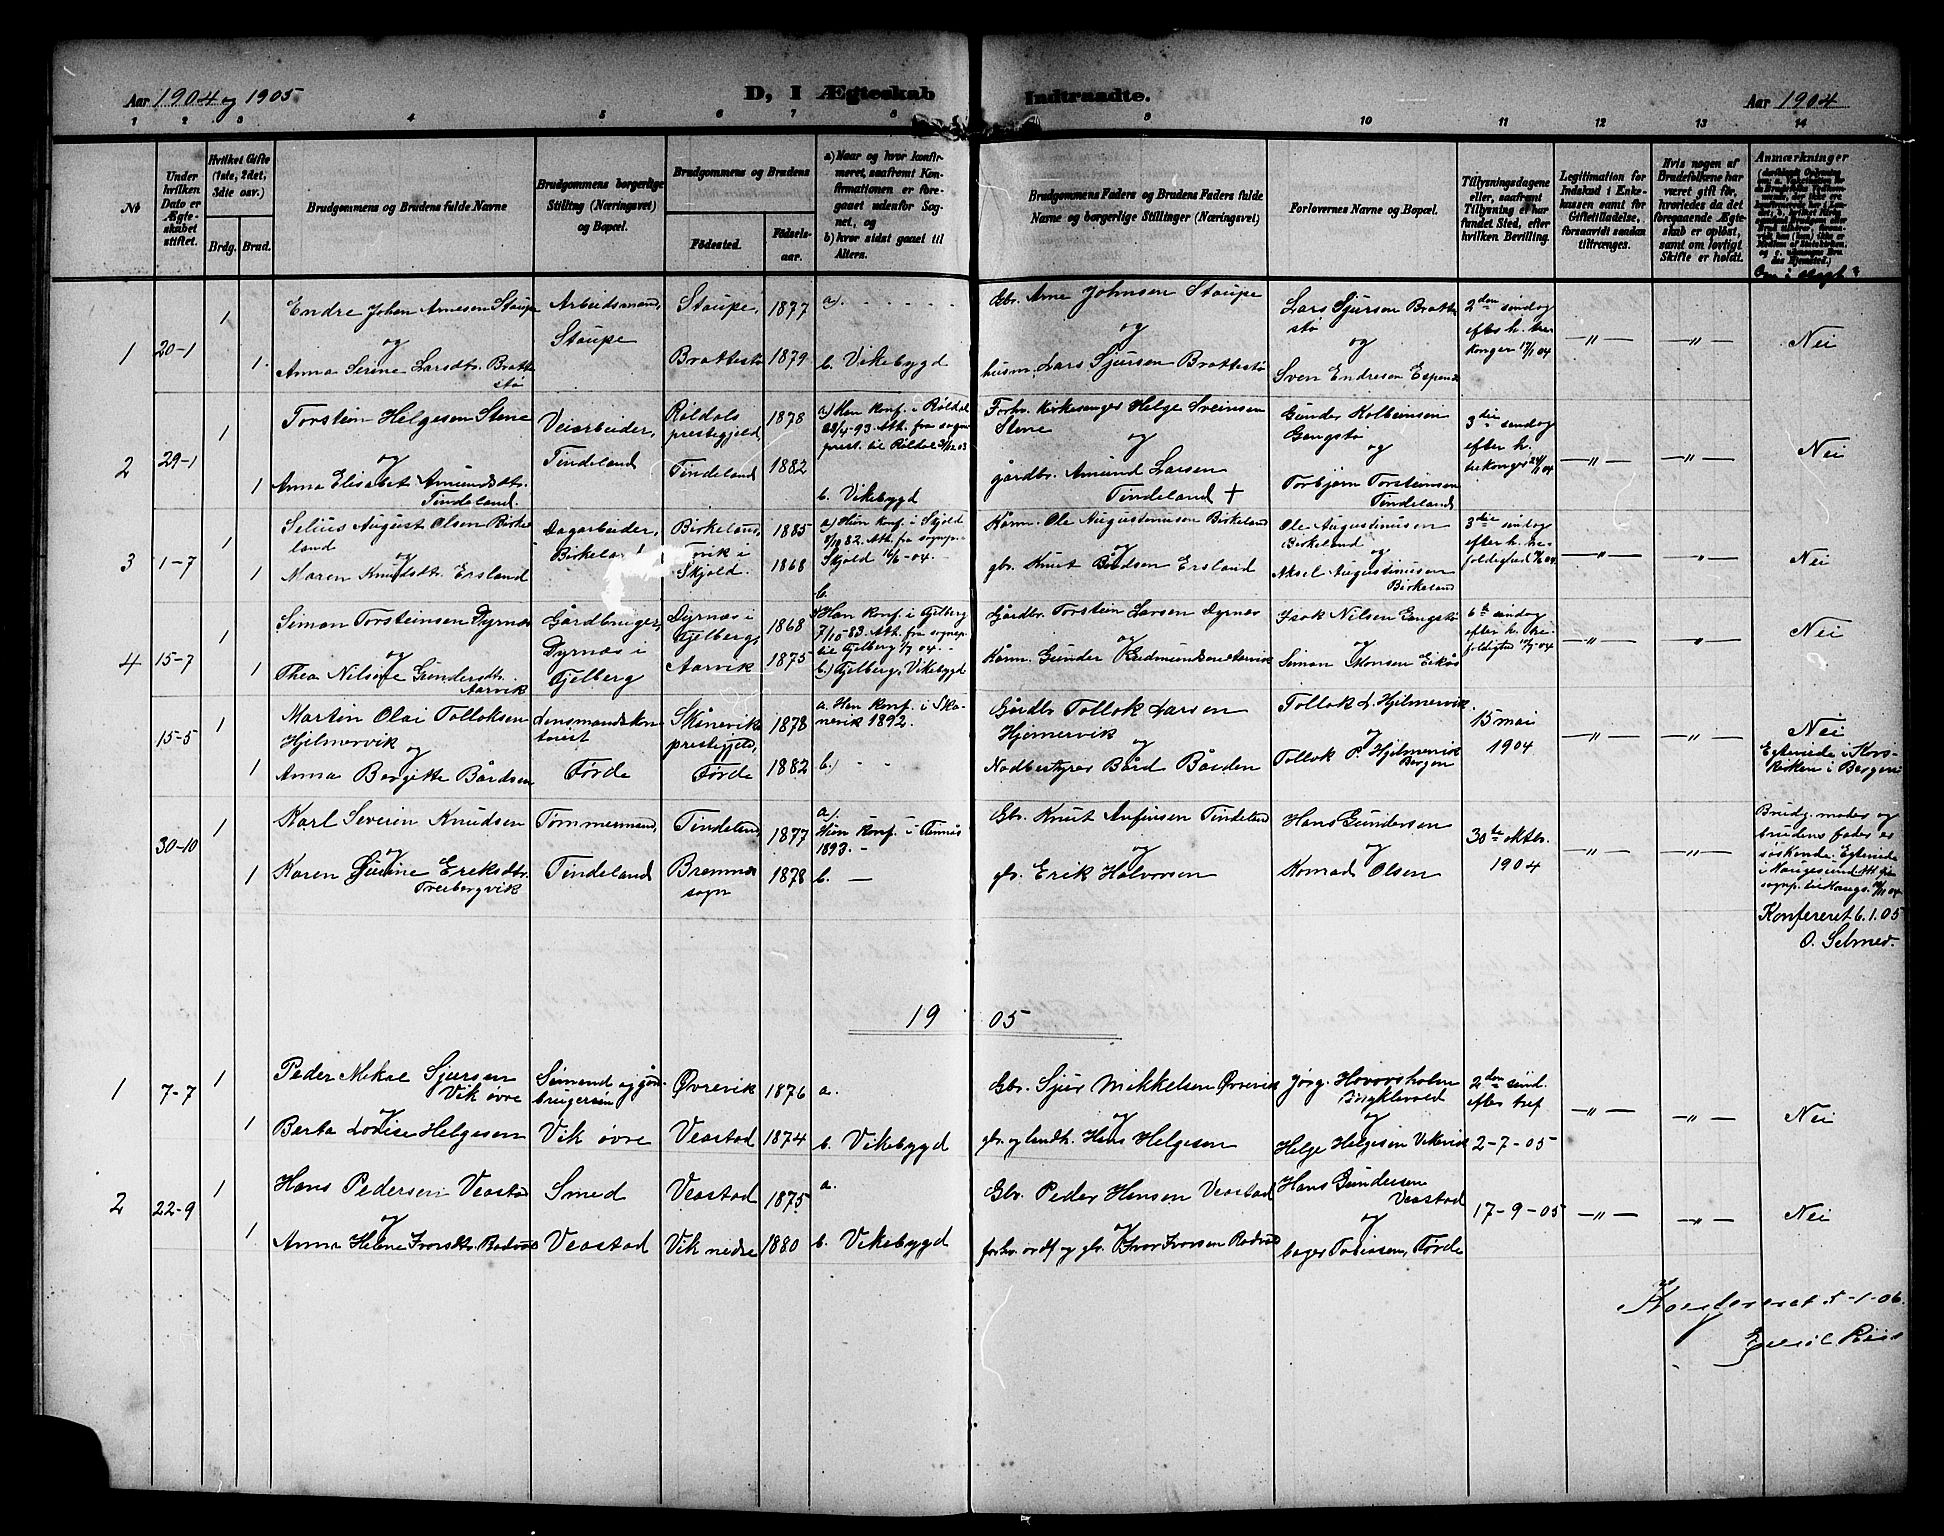 Aar 1904 og 1905
D, I Ægteskab Indtraadte.
Aar 1904
1 2 3 4 5 6 7 8 9 10 11 12 13 14
№
Under hvilken Dato er Ægteskabet stiftet.
Hvilket Gifte (1ste, 2det, 3die osv.)
Brdg. Brud.
Brudgommens og Brudens fulde Navne
Brudgommens borgerlige Stilling (Næringsvei) og Bopæl.
Brudgommens og Brudens
Födested. Födselsaar.
a) Naar og hvor konfirmeret, saafremt Konfirmationen er foregaaet udenfor Sognet, og
b) hvor sidst gaaet til Alters.
Brudgommens Faders og Brudens Faders fulde Navne og borgerlige Stillinger (Næringsvei)
Forlovernes Navne og Bopæl.
Tillysningsdagene eller, saafremt Tillysning ei har fundet Sted, efter hvilken Bevilling.
Legitimation for Indskud i Enkekassen samt for Giftetilladelse, forsaavidt saadan tiltrænges.
Hvis nogen af Brudefolkene har været gift før, hvorledes da det foregaaende Ægteskab er opløst, samt om lovligt Skifte er holdt.
Anmærkninger
1 20-1 1 Endre Johan Arnesen Staupe Arbeidsmand, Staupe, 1877 a). Gbr. Arne Johnsen Staupe Lars Sjursen Brattestø 2den søndag
og Staupe og og efter h. tre konger 17/1 04 Nei
1 Anna Serine Larsdtr. Brattestø Brattestø 1879 b. Vikebygd husm. Lars Sjursen Brattestø Sven Endresen Espenes
2 29-1 1 Torstein Helgesen Stene Veiarbeider, Røldals prestegjeld, 1878 a) Han konf. i Røldal 28/4-93. Att. fra sogneprest. til Røldal Forhv. kirkesanger Helge Sveinsen Stene Gunder Kolbeinsen Gangstø 3die søndag efter h. tre konger 24/1 04
og Tindeland og og Nei
1 Anna Elisabet Amundsdtr. Tindeland. Tindeland 1882 b. Vikebygd gårdbr. Amund Larsen Tindeland + Torbjørn Torsteinsen Tindeland
3 1-7 1 Selius August Olsen Birkeland Dagarbeider, Birkeland 1885 a) Hun konf. i Skjold Att. fra sognepr. Skjold 16/6-04. Kårm. Ole Augustinusen Birkeland Ole Augustinusen Birkeland 3die søndag efter h. trefoldighed
og Birkeland og og Nei
1 Maren Knudsdtr. Ersland i Skjold. 1868 b. gbr. Knut Ersland Aksel Augustinusen Birkeland
4 15-7 1 Simon Torsteinsen Dyrnes Gårdbruger, Dyrnæs i Fjelberg, 1868 a) Han konf. i Fjelberg 7/10-83. Att. fra sognepr. til Fjelberg 1/7 04. Gårdbr. Torstein Larsen Dyrnes Isak Nilsen Gangstø 6te søndag efter h. trefoldighed
og Dyrnæs i Fjelberg og og Nei
1 Thea Nilsine Gundersdtr. Aarvik Aarvik 1875 b) Fjelberg, Vikebygd Kårm. Gunder Gudmundsen Aarvik Simon Monsen Eikås
15-5 1 Martin Olai Tolloksen Hjelmervik Lensmandskontorist Skånevik prestegjeld, 1878 a. Han konf. i Skånevik 1892. Gårdbr Tollok Larsen Hjelmervik Tollok L. Hjelmervik. 15 mai 1904 Nei
og og og
1 Anna Bergitte Bårdsen Førde Førde 1882 b) Bård Tollok P. Hjelmervik Bergen Egteviede i Korskirken i Bergen
30-10 1 Karl Severin Knudsen Tømmermand, Tindeland, 1877 a). Hun konf. i 1893. Gbr. Knut Anfinsen Tindeland Hans Gundersen 30te oktbr. 1904 Brudg. moder og brudens fader er søskende. Egteviede i Haugesund
og og og
1 Karen Eriksdtr. Tindeland Bremnes sogn 1878 b. gbr. Erik Halvorsen Konrad Olsen
Konfereret 6.1.05
O. Selmer.
1905
1 7-7 1 Peder Mikal Sjursen Vik øvre Sømand og Øvrevik 1876 a. Gbr. Sjur Mikkelsen Øvrevik Jørg. Hovorsholm 2den sønd. efter tref
og og og Nei
1 Berta Lovise Helgesen Vik øvre Veastad 1874 b. Vikebygd gbr. og landh. Hans Helgesen Helge Helgesen Vikevik 2-7-05
2 22-9 1 Hans Pedersen Veastad Smed Veastad 1875 a. Gbr. Peder Hansen Veastad Hans Gundersen Veastad 17-9-05
og og og Nei
1 Anna Helene Iversdtr. Veastad Vik nedre 1880 b. Vikebygd forhv. ordf og gbr. Ivar Iversen bager Tobiasen, Førde
Konfereret 5-1-06.